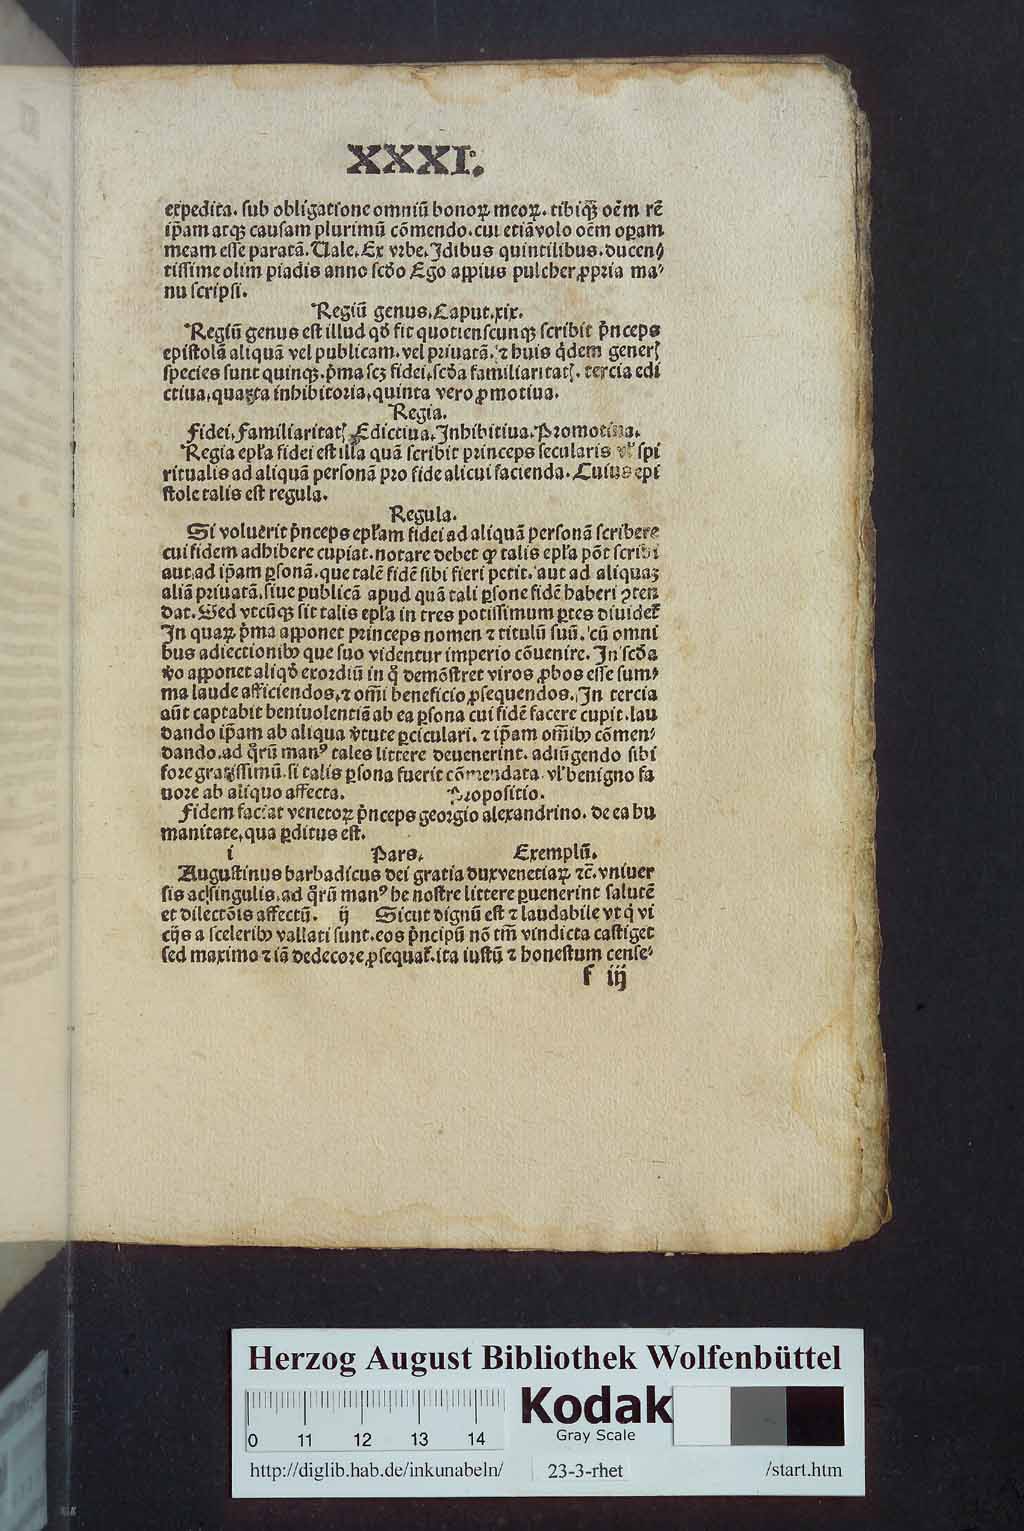 XXXI.
expedita. sub obligatione omniū bonoꝝ meoꝝ. tibiqꝫ oēm rē
ip̄am atqꝫ causam plurimū cōmendo. cui etiā volo oēm oꝑam
meam esse paratā. Uale. Ex vrbe. Idibus quintilibus. ducen⸗
tissime olim piadis anno scd̄o Ego appius pulcher ꝓpria ma⸗
nu scripsi.
Regiū genus. Caput. xix.
Regiū genus est illud qd̄ fit quotienscunqꝫ scribit p̄nceps
epistolā aliquā vel publicam. vel priuatā. ⁊ huis q̄dem generꝭ
species sunt quinqꝫ. p̄ma scꝫ fidei. scd̄a familiaritatꝭ. tercia edi
ctiua. quarta inhibitoria. quinta vero ꝓmotiua.
Regia.
Fidei. Familiaritatꝭ Edictiua. Inhibitiua. Promotiua.
Regia epl̄a fidei est illa quā scribit princeps secularis vl̓ spi
ritualis ad aliquā personā pro fide alicui facienda. Cuius epi
stole talis est regula.
Regula.
Si voluerit p̄nceps epl̄am fidei ad aliquā personā scribere
cui fidem adhibere cupiat. notare debet ꝙ talis epl̄a pōt scribi
aut ad ip̄am ꝑsonā. que talē fidē sibi fieri petit. aut ad aliquaꝫ
aliā priuatā. siue publicā apud quā tali ꝑsone fidē haberi ꝯten
dat. Sed vtcūqꝫ sit talis epl̄a in tres potissimum ꝑtes diuidet̄
In quaꝝ p̄ma apponet princeps nomen ⁊ titulū suū. cū omni
bus adiectionibꝰ que suo videntur imperio cōuenire. In scd̄a
v̄o apponet aliqd̄ exordiū in q̄ demōstret viros ꝓbos esse sum⸗
ma laude afficiendos. ⁊ om̄i beneficio ꝓsequendos. In tercia
aūt captabit beniuolentiā ab ea ꝑsona cui fidē facere cupit. lau
dando ip̄am ab aliqua v̄tute ꝑticulari. ⁊ ip̄am om̄ibꝰ cōmen⸗
dando. ad q̄rū manꝰ tales littere deuenerint. adiūgendo sibi
fore gratissimū. si talis ꝑsona fuerit cōmendata vl̓ benigno fa
uore ab aliquo affecta. Propositio.
Fidem faciat venetoꝝ p̄nceps georgio alexandrino. de ea hu
manitate. qua p̄ditus est.
i Pars. Exemplū.
Augustinus barbadicus dei gratia dux venetiaꝝ ⁊c̄. vniuer
sis ac singulis. ad q̄rū manꝰ he nostre littere ꝑuenerint salutē
et dilectōis affectū. ij Sicut dignū est ⁊ laudabile vt q̄ vi
cijs a sceleribꝰ vallati sunt. eos p̄ncipū nō tm̄ vindicta castiget
sed maximo ⁊ iā dedecore ꝓsequat̄. ita iustū ⁊ honestum cense⸗
f iij
Herzog August Bibliothek Wolfenbüttel
0 11 12 13 14
Kodak
Gray Scale
http://diglib.hab.de/inkunabeln/ 23-3-rhet /start.htm